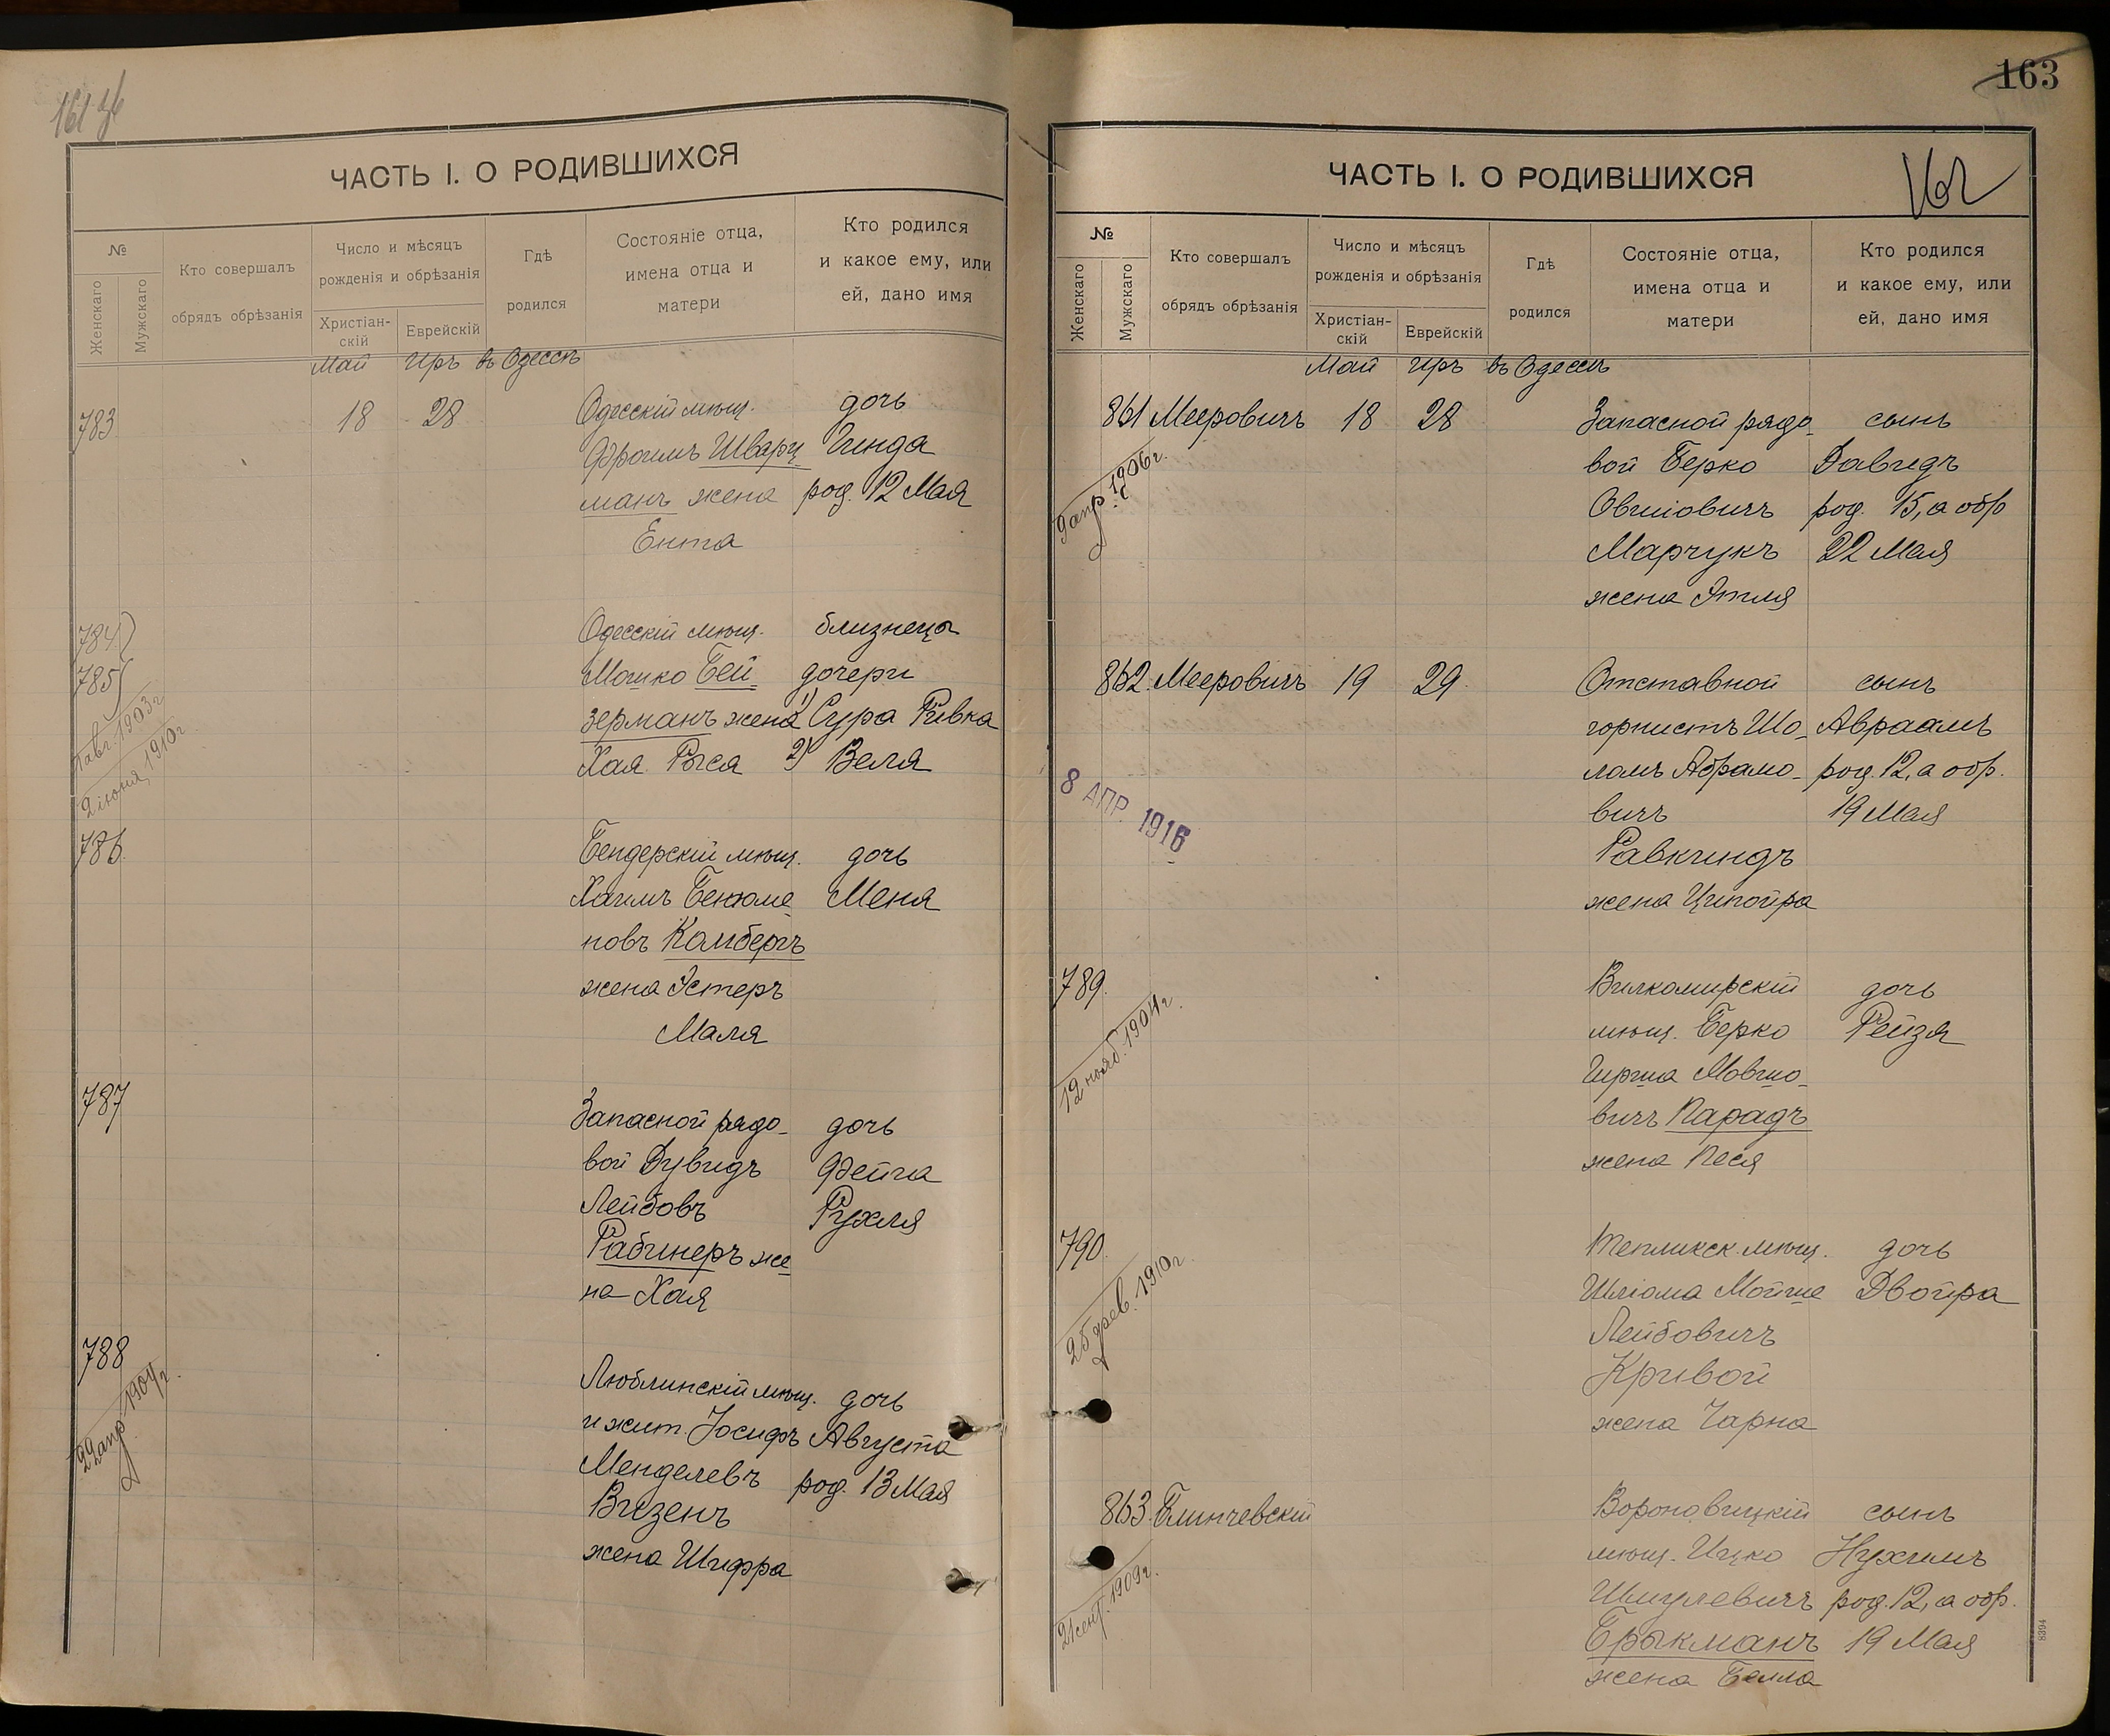 161 об
ЧАСТЬ I. О РОДИВШИХСЯ
№
Женскаго
Мужскаго
Кто совершалъ
обрядъ обрѣзанія
Число и мѣсяцъ
рожденія и обрѣзанія
Христіан-
скій
Еврейскій
Гдѣ
родился
Состояніе отца,
имена отца и
матери
Кто родился
и какое ему, или
ей, дано имя
Май Иръ въ Одессѣ
783 18 28 Одесскій мѣщ. дочь
Фроимъ Шварц Гинда
манъ жена род. 12 Мая
Ента
784) Одесскій мѣщ. близнеца
785) Мошко Бей- дочери
зерманъ жена 1) Сура Ривка
Хая Рыся 2) Веля
1 авг. 1903 г.
2 іюня 1910 г.
786. Бендерскій мѣщ. дочь
Хаимъ Бенюме Меня
новъ Комбергъ
жена Эстеръ
Маля
787 Запасной рядо- дочь
вой Дувидъ Фейга
Лейбовъ Рухля
Рабинеръ же
на Хая
788 Люблинскій мѣщ. дочь
и жит. Іосифъ Августа
Менделевъ род. 13 Мая
Визенъ
жена Шифра
22 апр 1904 г.
163
162
ЧАСТЬ I. О РОДИВШИХСЯ
№
Женскаго
Мужскаго
Кто совершалъ
обрядъ обрѣзанія
Число и мѣсяцъ
рожденія и обрѣзанія
Христіан-
скій
Еврейскій
Гдѣ
родился
Состояніе отца,
имена отца и
матери
Кто родился
и какое ему, или
ей, дано имя
Май Иръ въ Одессѣ
861 Мееровичъ 18 28 Запасной рядо- сынъ
вой Берко Давидъ
Овшіовичъ род. 15, а обр
Марчукъ 22 Мая
жена Этля
9 апр. 1906 г.
862. Мееровичъ 19 29 Отставной сынъ
горнистъ Шо- Авраамъ
ломъ Абрамо- род. 12, а обр.
вичъ 19 Мая
Равкиндъ
жена Ципойра
8 АПР. 1916
789. Вилкомирскій дочь
мѣщ. Берко Рейзя
Гирша Мовшо-
вичъ Парадъ
жена Песя
12 нояб. 1904 г.
790. Тепликск. мѣщ. дочь
Шліома Мойше Двойра
Лейбовичъ
Кривой
жена Чарна
25 фев. 1910 г.
863. Блинчевскій Вороновицкій сынъ
мѣщ. Ицко Нухимъ
Шмулевичъ род. 12, а обр.
Брыкманъ 19 Мая
жена Белла
21 сент. 1909 г.
8394